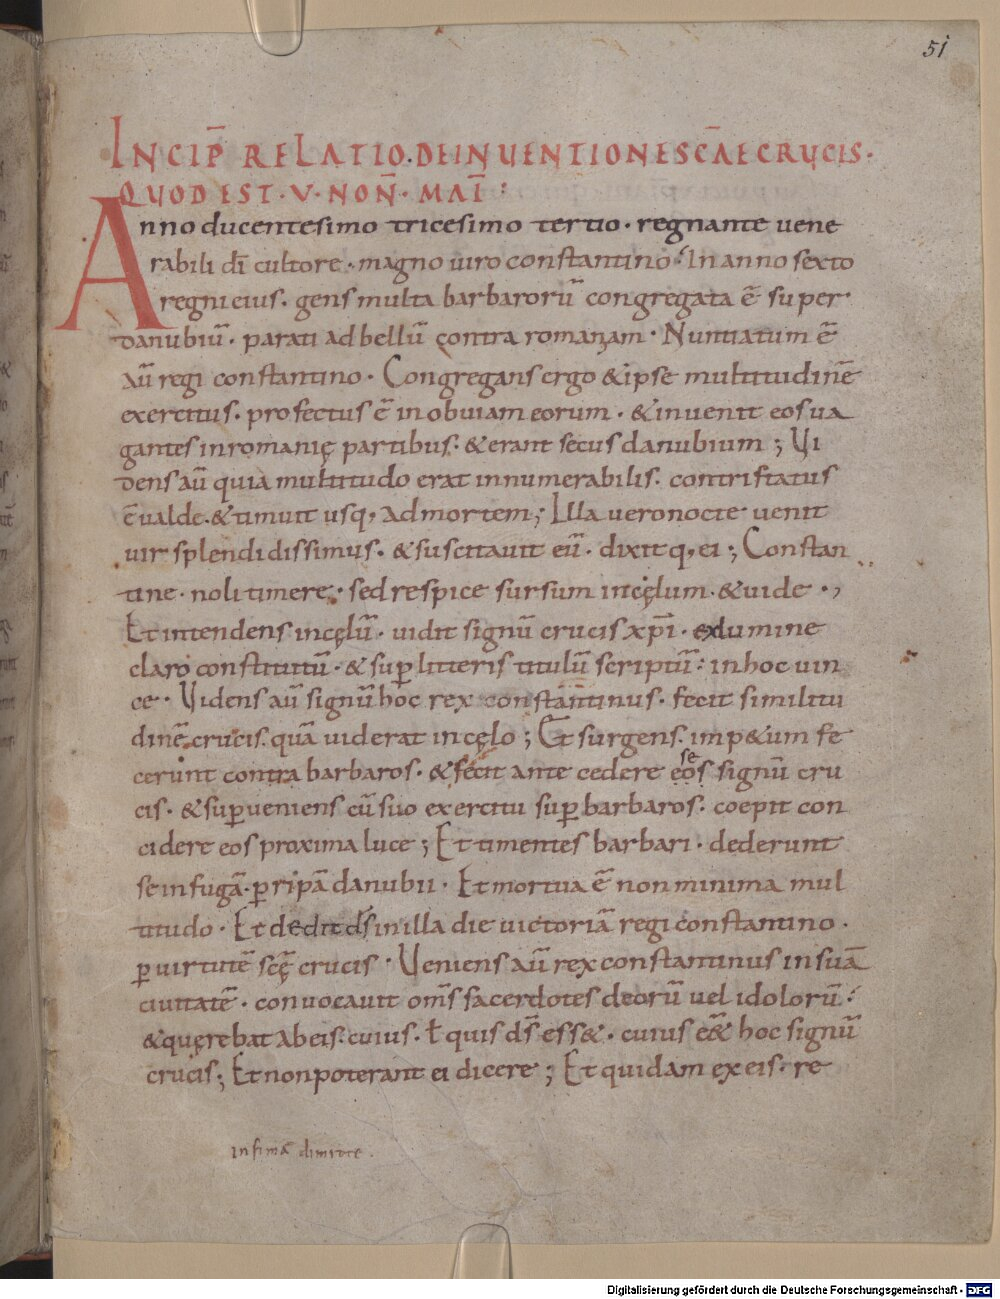 51
INCIP̄ RELATIO·DE INVENTIONE SC̄AE CRUCIS·
QUOD EST·V·NON̄·MAĪ:
Anno ducentesimo tricesimo tertio· regnante vene
rabili dī cultore· magno viro constantino· In anno sexto
regni eius· gens multa barbarorū congregata ē super
danubiū· parati ad bellū contra romaniam· Nuntiatum ē
aū regi constantino· Congregans ergo & ipse multitudinē
exercitus· profectus ē in obviam eorum· & invenit eos va
gantes in romanię partibus· & erant secus danubium; Vi
dens aū quia multitudo erat innumerabilis· contristatus
ē valde·& timuit usq; ad mortem; Illa vero nocte venit
vir splendidissimus· & suscitavit eū· dixit q; ei; Constan
tine· noli timere· sed respice sursum in cęlum·& vide·,
Et intendens in cęlū· vidit signū crucis xp̄i· ex lumine
claro constitutū·& sup litteris titulū scriptū: in hoc vin
ce· Videns aū signū hoc rex constantinus· fecit similitu
dinē crucis· quā viderat in cęlo; Et surgens· imp&um fe
cerunt contra barbaros·& fecit ante cedere eos se signū cru
cis·& sup̱veniens cū suo exercitu sup̱ barbaros· coepit con
cidere eos proxima luce; Et timentes barbari· dederunt
se in fugā· p̱ ripā danubii· Et mortua ē non minima mul
titudo· Et dedit ds̄ in illa die victoriā regi constantino·
p̱ virtutē scę̄ crucis· Veniens aū rex constantinus in suā
civitatē· convocavit om̄s sacerdotes deorū vel idolorū:
& quęrebat ab eis: cuius· ł quis ds̄ ess&· cuius e&̄ hoc signū
crucis; Et non poterant ei dicere; Et quidam ex eis· re
infimā dimitte.
Digitalisierung gefördert durch die Deutsche Forschungsgemeinschaft - DFG